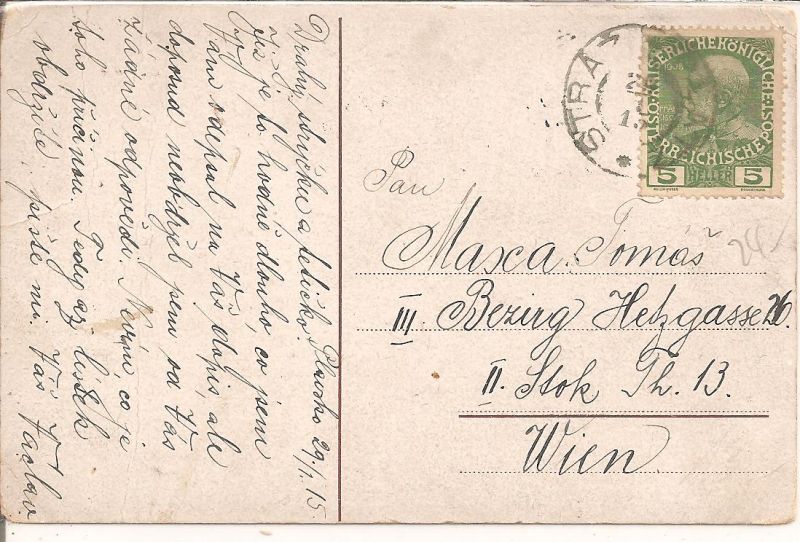 Drahý strýčku a tetičko, Plusko 29/1. 15.
Již je to hodně dlouho, co jsem
Vám odepsal na Váš dopis, ale
doposud neobdržel jsem od Vás
žádné odpovědi. Nevím, co je
toho příčinou. Tedy až lístek
obdržíte, pište mi. Váš Václav.
STRA
KAISERLICHE KÖNIGLICHE ÖSTERREICHISCHE POST
5 HELLER 5
Pan
Maxa Tomáš
III Bezirg Hetzgasse 26
II. Stok Th. 13.
Wien